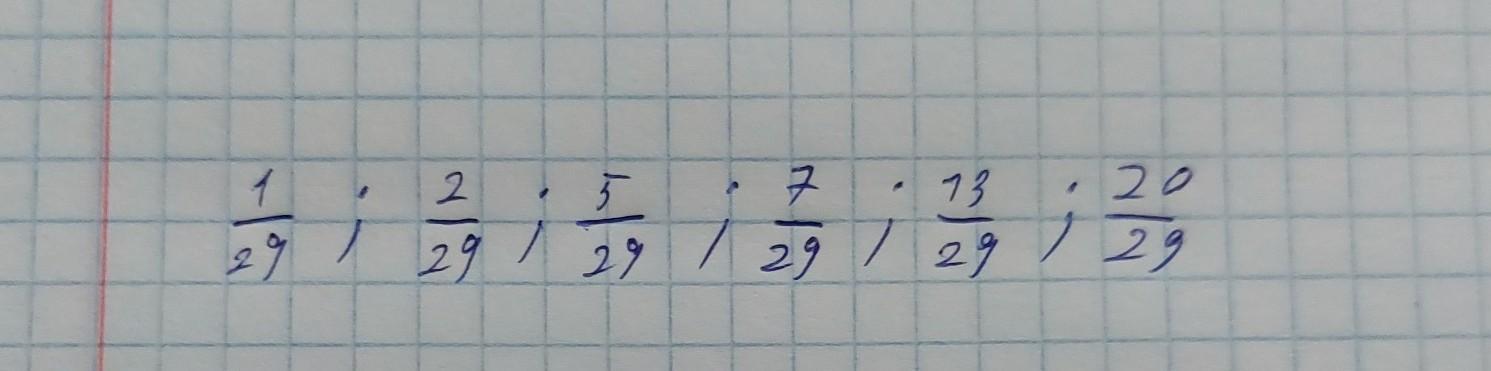 1/29 ; 2/29 ; 5/29 ; 7/29 ; 13/29 ; 20/29